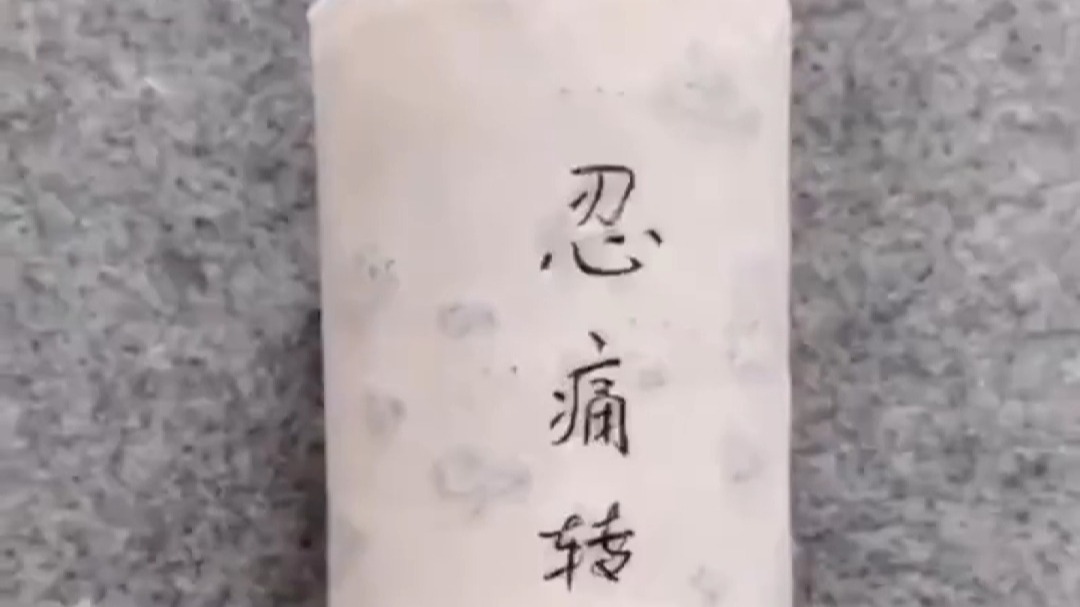 忍痛转